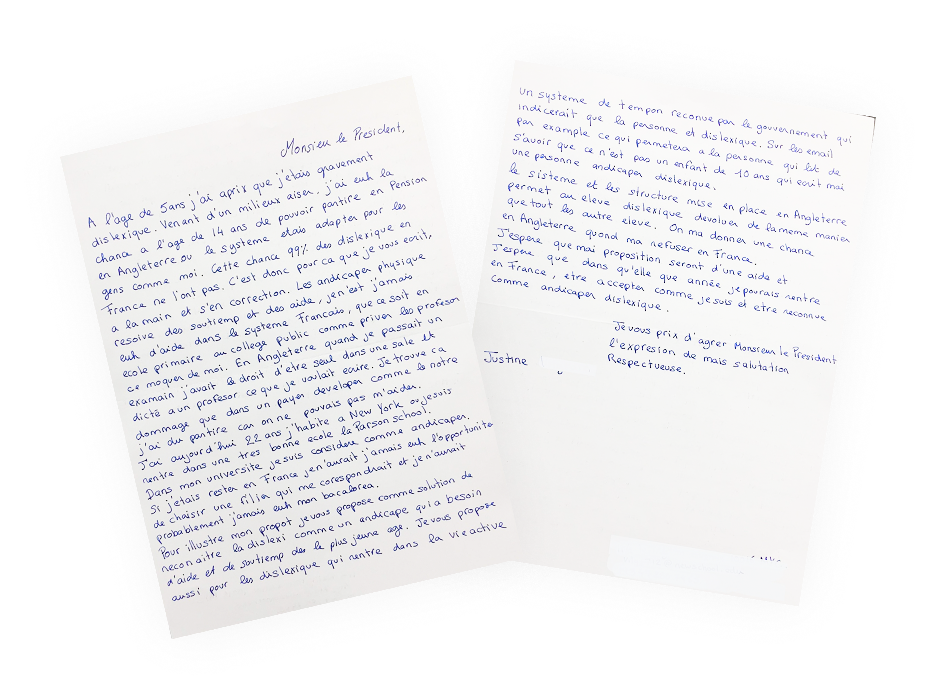 Monsieur le President,
A l'age de 5ans j'ai aprix que j'etais gravement
dislexique. Venant d'un milieux aiser, j'ai euh la
chance a l'age de 14 ans de pouvoir pantire en Pension
en Angleterre ou le systeme etais adapter pour les
gens comme moi. Cette chance 99% des dislexique en
France ne l'ont pas. C'est donc pour ca que je vous ecrit,
a la main et s'en correction. Les andicaper physique
resoive des soutiemp et des aide, je n'est j'amais
euh d'aide dans le systeme Francais, que ce soit en
ecole primaire au college public comme priver les profeson
ce moquer de moi. En Angleterre quand je passait un
examain j'avait le droit d'etre seul dans une sale et
dicté a un profesor ce que je voulait ecrire. Je trouve ca
dommage que dans un payer developer comme le notre
j'ai du partire car on ne pouvais pas m'aider.
J'ai aujourd'hui 22 ans j'habite a New York ou je suis
rentre dans une tres bonne ecole la Parson school.
Dans mon universite je suis considere comme andicaper.
Si j'etais rester en France je n'aurait j'amais euh l'opportunite
de choisir une filier qui me corespondrait et je n'aurait
probablement j'amais euh mon bacalorea.
Pour illustre mon propot je vous propose comme solution de
reconaitre la dislexi comme un andicape qui a besoin
d'aide et de soutiemp des le plus jeune age. Je vous propose
aussi pour les dislexique qui rentre dans la vie active
un systeme de tempon reconue par le gouvernement qui
indicerait que la personne et dislexique. Sur les email
par example ce qui permetera a la personne qui lit de
s'avoir que ce n'est pas un enfant de 10 ans qui ecrit mai
une personne andicaper dislexique.
le sisteme et les structure mise en place en Angleterre
permet au eleve dislexique devoluer de la meme manier
que tout les autre eleve. On ma donner une chance
en Angleterre quand ma refuser en France.
J'espere que mai proposition seront d'une aide et
J'espere que dans qu'elle que année je pourais rentre
en France, etre accepter comme je suis et etre reconnue
comme andicaper dislexique.
Je vous prix d'agrer Monsieur le President
l'expresion de mais salutation
Respectueuse.
Justine